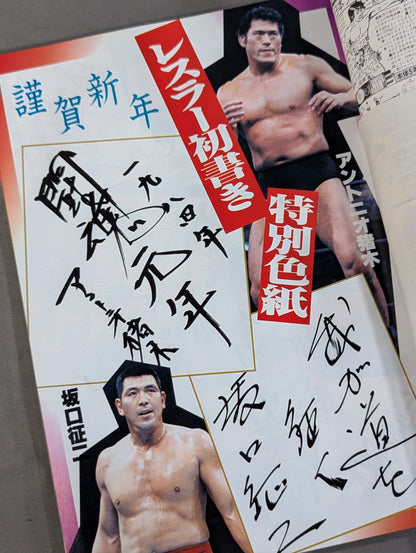 謹賀新年
レスラー初書き
特別色紙
アントニオ猪木
一九八四年
闘魂元年
アントニオ猪木
坂口征二
我が道を
坂口征二